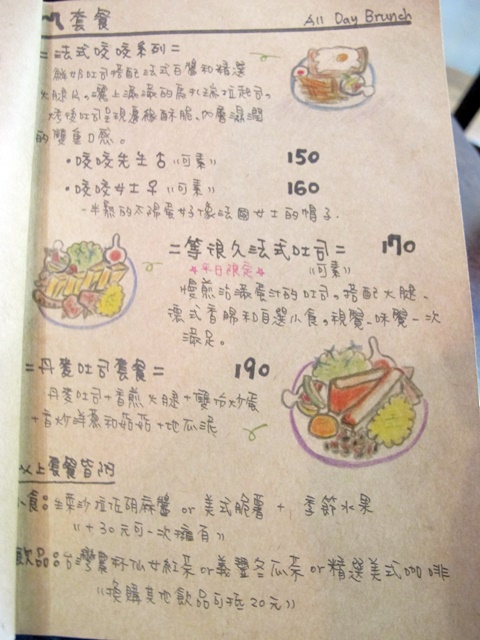 套餐 All Day Brunch
=法式咬咬系列=
鮮奶吐司搭配法式白醬和精選
火腿片。灑上滿滿的馬扎瑞拉起司。
烤後吐司呈現表層酥脆、內層濕潤
的雙重口感。
・咬咬先生 "可素" 150
・咬咬女士 "可素" 160
-半熟的太陽蛋好像法國女士的帽子.
=等很久法式吐司= 170
平日限定 "可素"
慢煎沾滿蛋汁的吐司。搭配火腿、
德式香腸和自選小食。視覺、味覺一次
滿足。
=丹麥吐司套餐= 190
丹麥吐司+香煎火腿+雙色炒蛋
+香炒洋蔥和菇菇+地瓜泥
以上套餐皆附
小食：生菜沙拉佐胡麻醬 or 美式脆薯 + 季節水果
"+30元可一次擁有"
飲品：台灣農林仙女紅茶 or 義豐冬瓜茶 or 精選美式咖啡
"換購其他飲品可抵20元"